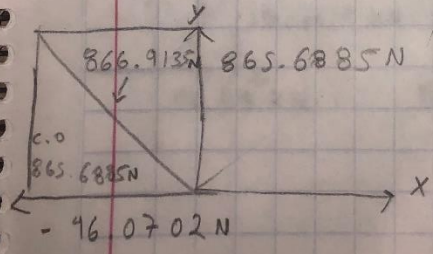 y
866.9135N 865.6885N
c.o
865.6885N
X
- 46.0702N